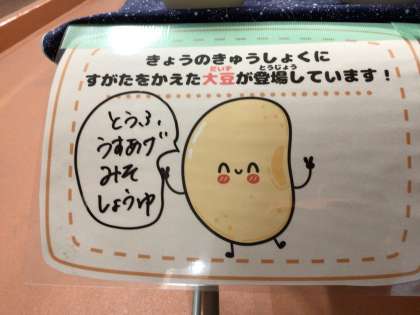 きょうのきゅうしょくに
すがたをかえた大豆が登場しています！
だいず
とうじょう
とうふ、
うすあげ
みそ
しょうゆ